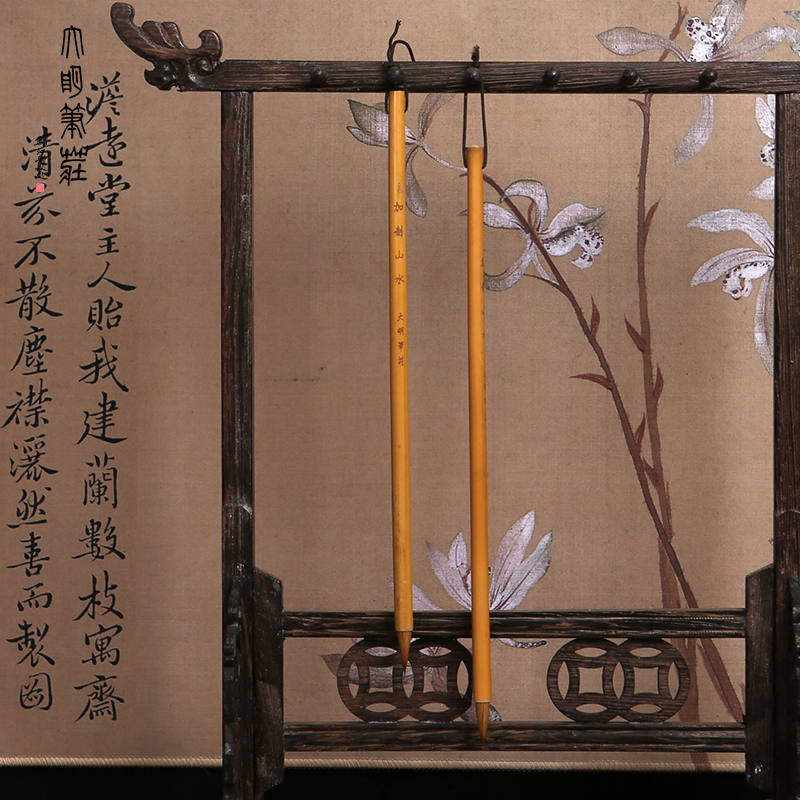 大明筆莊
澹遠堂主人貽我建蘭數枝寓齋
清芬不散塵襟灑然喜而製圖
加製山水 大明筆莊